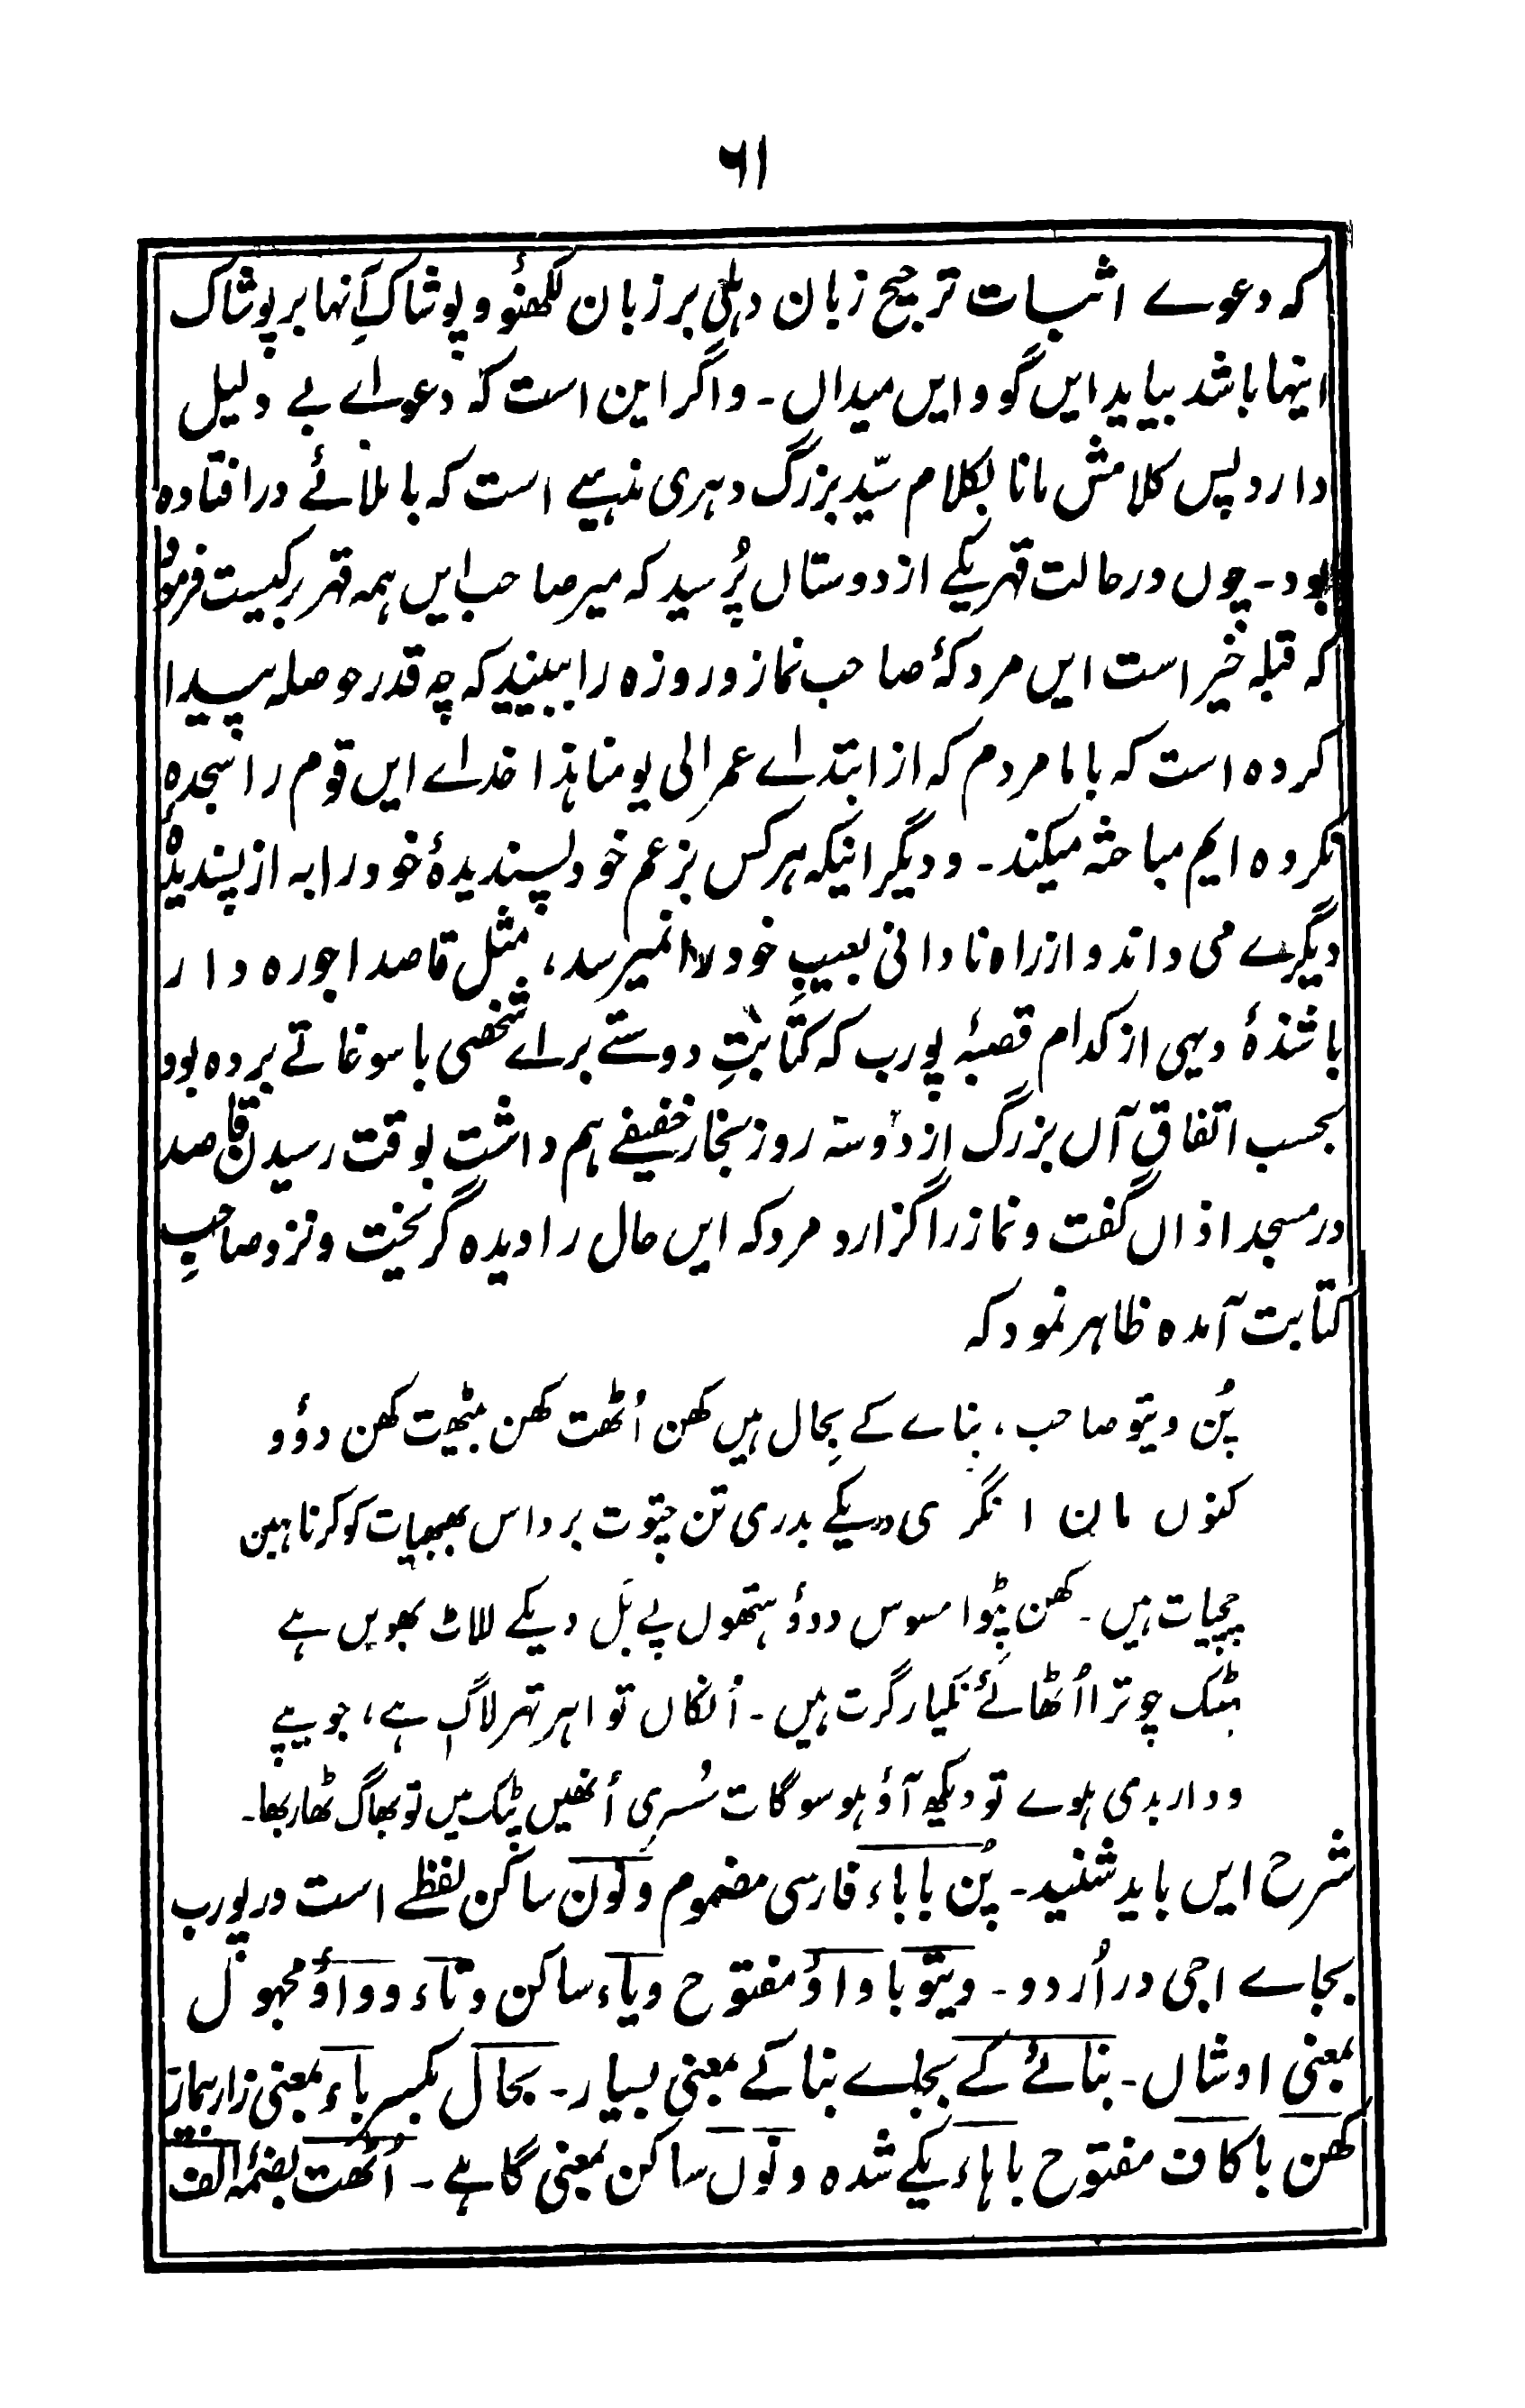 ۶۱
که دعوے اثبات ترجیح زبان دہلی بر زبان لکھنؤ و پوشاک آنها بر پوشاک
اینها باشد بیاید ایں گو و ایں میداں۔ و اگر این است که دعواے بے دلیل
دارد پس کلامش مانا بکلام سیّد بزرگ دہری مذہبے است که با ملائے در افتاده
بود۔ چوں در حالت قهر یکے از دوستاں پُرسید که میر صاحب ایں ہمه قهر بر کیست فرمود
که قبله خیر است ایں مردکۂ صاحب نماز و روزه را ببینید که چه قدر حوصله پیدا
کرده است که با ما مردم که از ابتداے عمر الی یومنا ہذا خداے ایں قوم را سجده
نکرده ایم مباحثه میکند۔ و دیگر اینکه ہر کس بزعم خود پسندیدۂ خود را به از پسندیدۂ
دیگرے می داند و از راه نادانی بعیبِ خود وا نمیرسد، مثل قاصد اجوره دار
باشندۂ دیہی از کدام قصبۂ پورب که کتابتِ دوستے براے شخصی با سوغاتے برده بود
بحسب اتفاق آں بزرگ از دو سه روز بخار خفیفے ہم داشت بوقت رسیدن قاصد
در مسجد اذاں گفت و نماز را گزارد مردکه ایں حال را دیده گریخت و نزد صاحبِ
کتابت آمده ظاہر نمود که
پُن ویتو صاحب، بنائے کے بِحال ہیں کھن اُٹھت کھن بٹھیت کھن دوؤ
کنوں ماں انگری دیکے بدری تن چتوت برداس بھبھیات کو کرنا ہین
چچیات ہیں۔ کھن پٹوا مسوس دوؤ ہتھوں پے بَل دیکے للاٹ بھویں ہے
ہٹک چوترا اُٹھائے نکیا رگرت ہیں۔ اُنکاں تو اہر تہر لاگ ہے، جو پیے
ودار بدی ہلوے تو دیکھ آؤ ہلو سوگات سُسری اُنھیں پٹک میں تو بھاگ ٹھار بھا۔
شرح ایں باید شنید۔ پُن با باء فارسی مضموم و نون ساکن لفظے است در پورب
بجاے اجی در اُردو۔ ویتو با واؤ مفتوح و یاء ساکن و تاء و واؤ مجہول
بمعنی اوشاں۔ بنائے کے بجاے بنا کے بمعنی بسیار۔ بحال بکسر باء بمعنی زار بیمار
کھن با کاف مفتوح با ہاء یکے شده و نوں ساکن بمعنی گاہے۔ اُٹھت بضمۂ الف